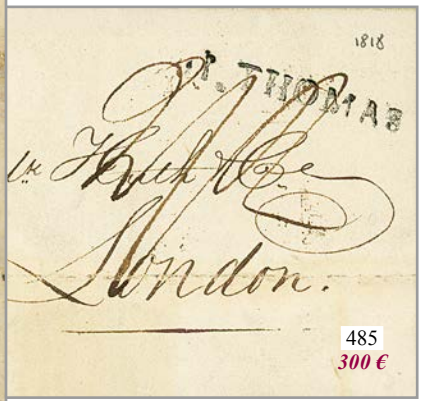 1818
ST. THOMAS
& Co
London.
485
300 €